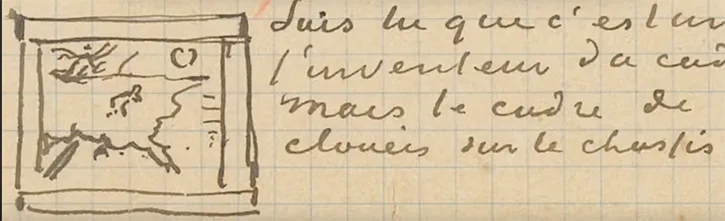 suis tu que c'est un
l'inventeur du cad
mais le cadre de
cloueés sur le chassis